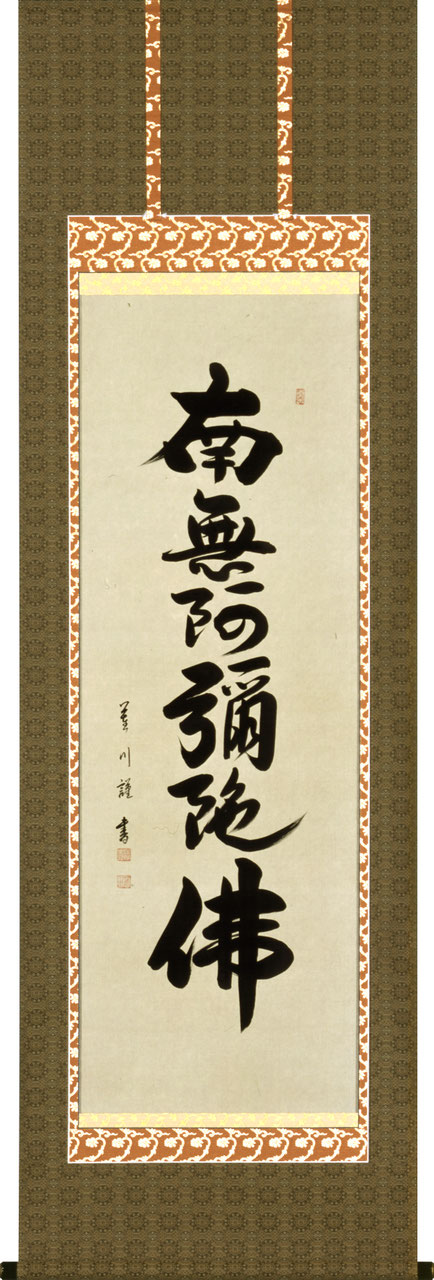 南無阿彌陀佛
川謹書